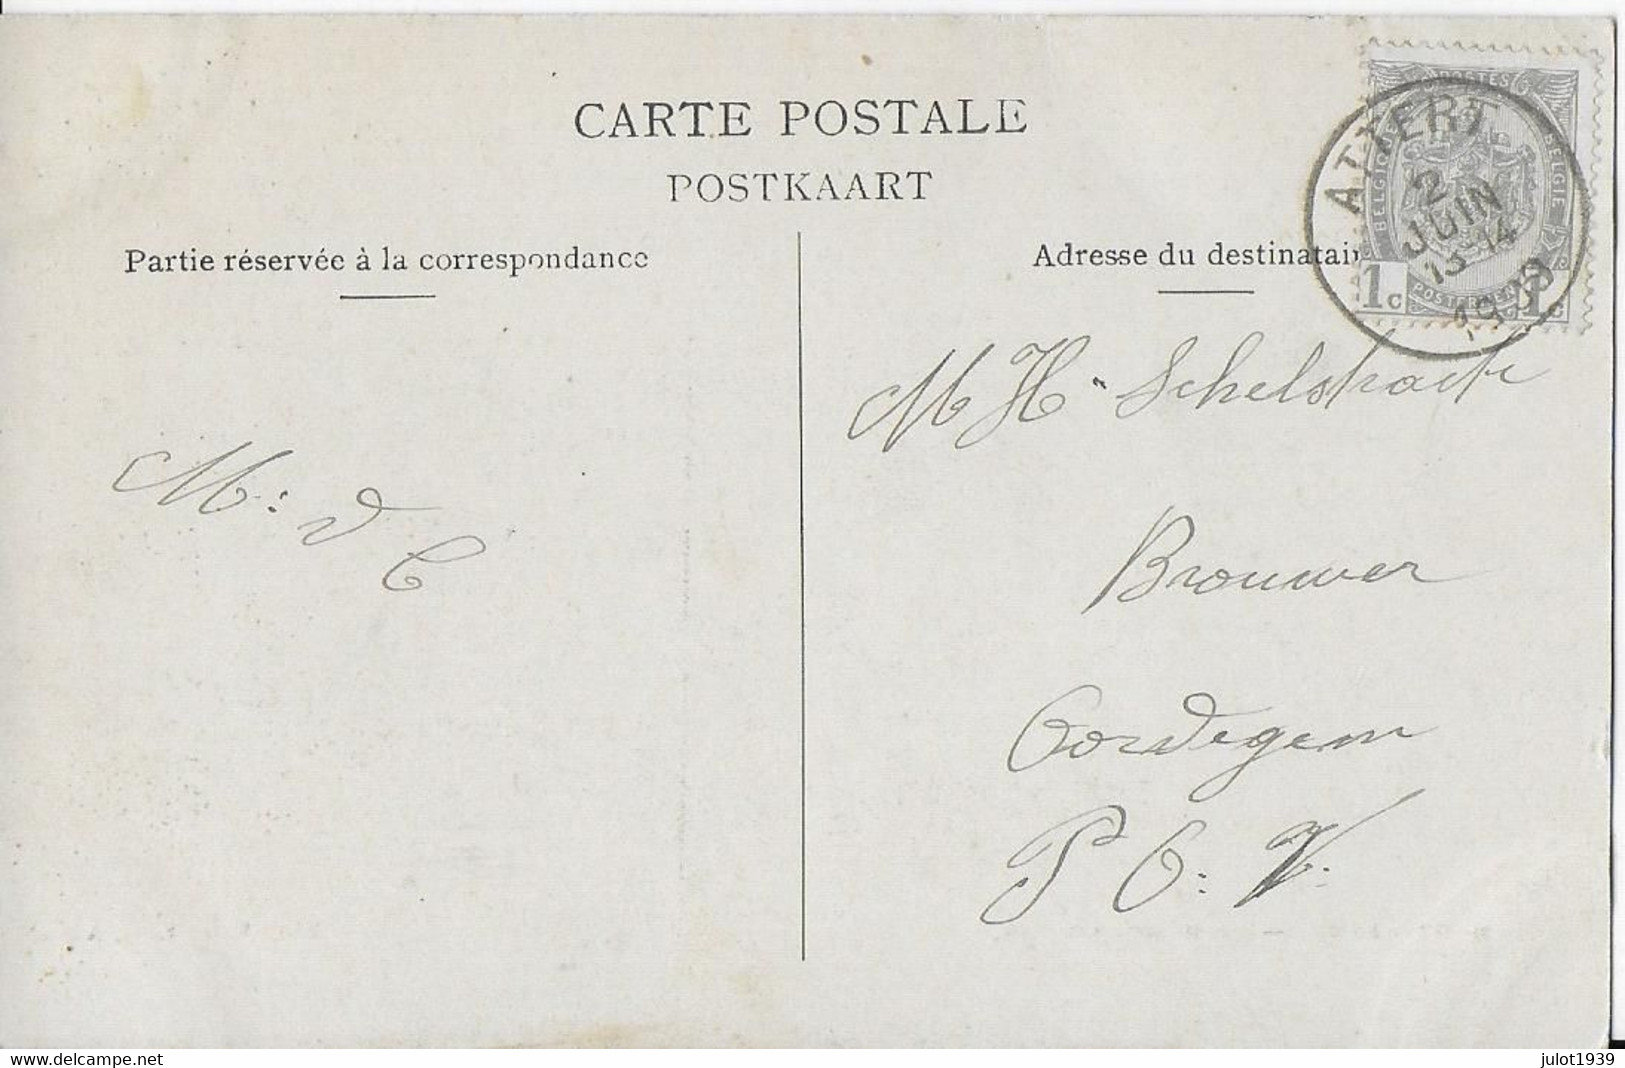 CARTE POSTALE
POSTKAART
Partie réservée à la correspondance
Adresse du destinatair
POSTES
BELGIQUE
BELGIË
POSTERIJEN
1c
1c
ATTERT
2
JUIN
13-14
1909
M H Schelstraete
Brouwer
Gordegem
P G: V.
M: d C
delcampe.net
www.delcampe.net
julot1939